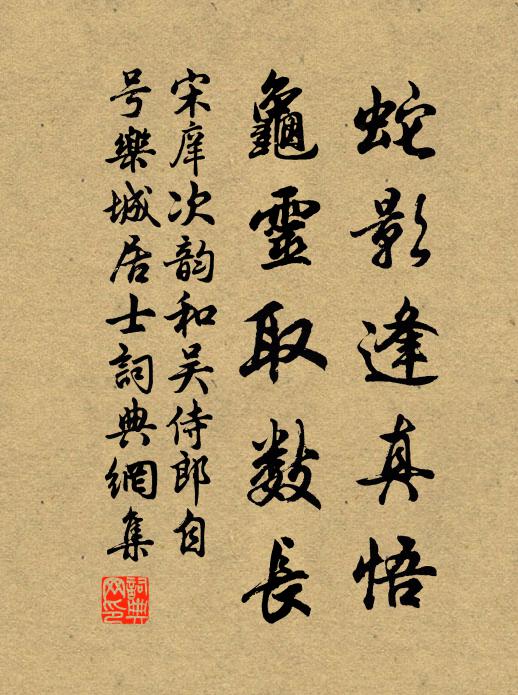 蛇影逢真悟
龜靈取数長
宋庠次韵和吴侍郎自
号樂城居士詞典網集
詞典网印